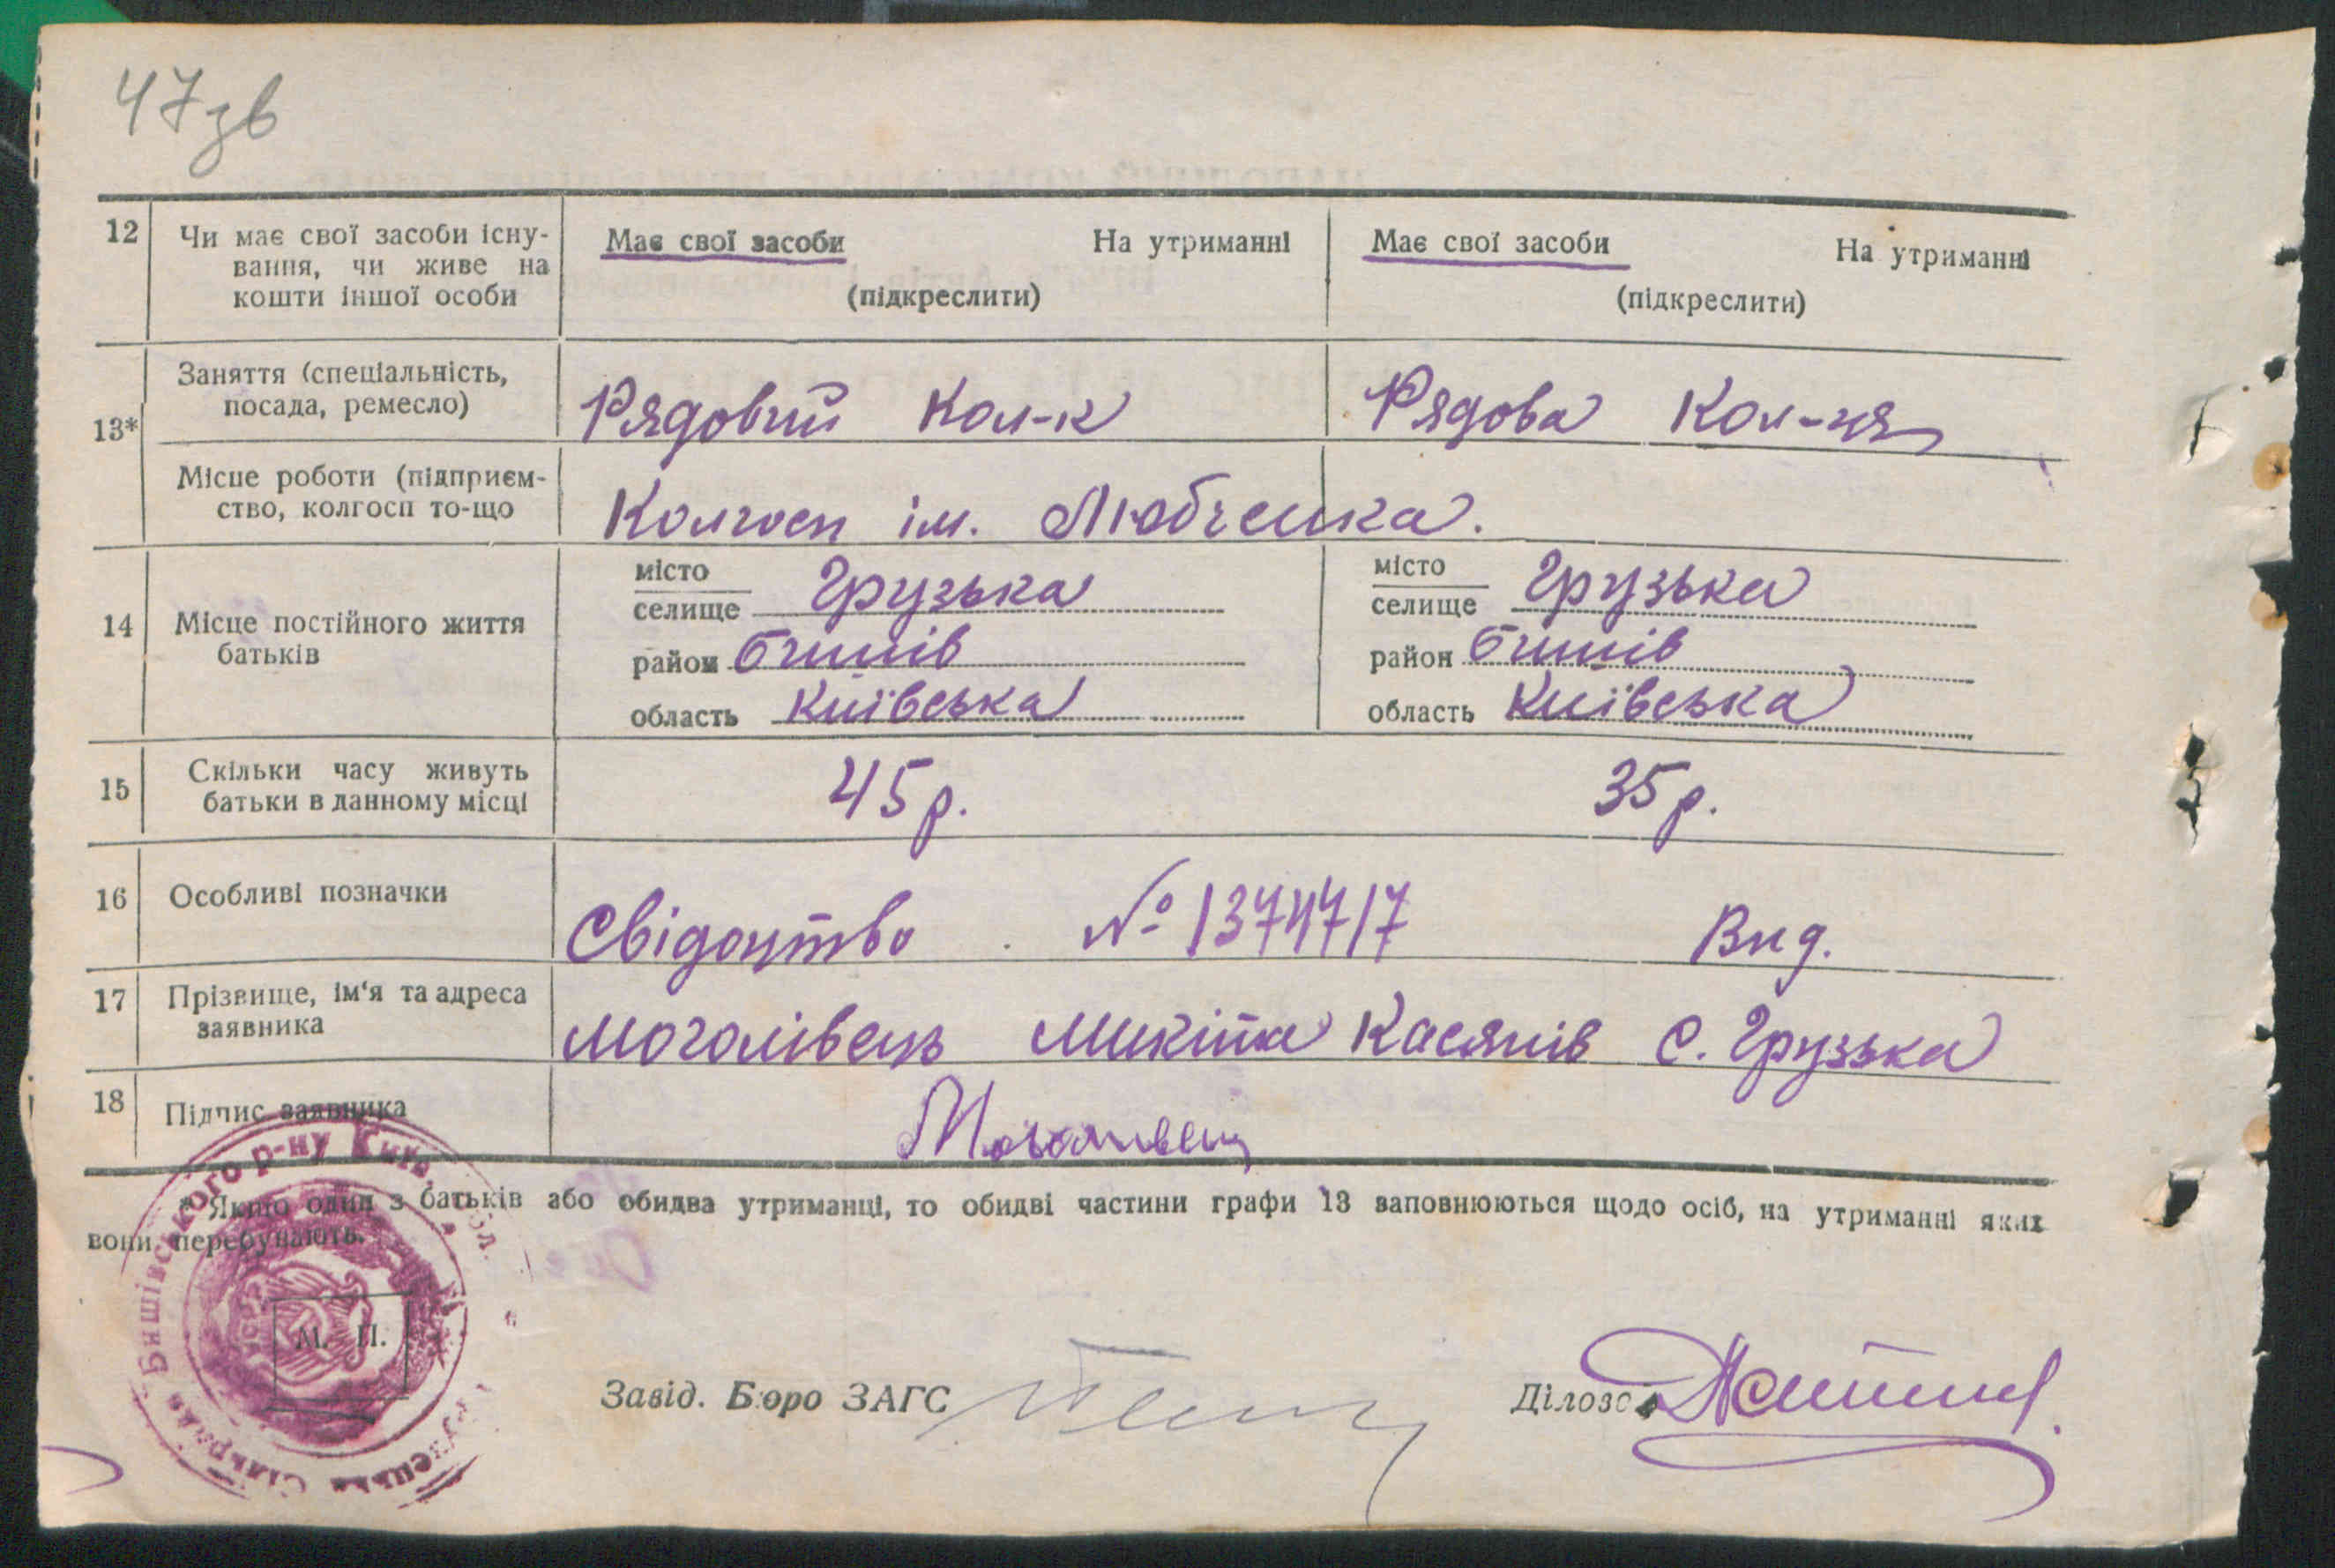 47зв
12 Чи має свої засоби існу-
вання, чи живе на
кошти іншої особи
Має свої засоби На утриманні
(підкреслити)
Має свої засоби На утриманні
(підкреслити)
13*
Заняття (спеціальність,
посада, ремесло)
Рядовий Кол-к
Рядова Кол-ця
Місце роботи (підприєм-
ство, колгосп то-що
Колгосп ім. Любченка.
14 Місце постійного життя
батьків
місто
селище Грузька
район Бишів
область Київська
місто
селище Грузька
район Бишів
область Київська
15 Скільки часу живуть
батьки в данному місці
45 р.
35 р.
16 Особливі позначки
Свідоцтво № 1374717 Вид.
17 Прізвище, ім'я та адреса
заявника
Моголівець Микіта Касянів С. Грузька
18 Підпис заявника
Моголивець
* Якщо один з батьків або обидва утриманці, то обидві частини графи 13 заповнюються щодо осіб, на утриманні яких
вони перебувають.
Бишівського р-ну Київ. обл.
Грузецька Сільрада
УСРР
М. П.
Завід. Бюро ЗАГС
Ділово